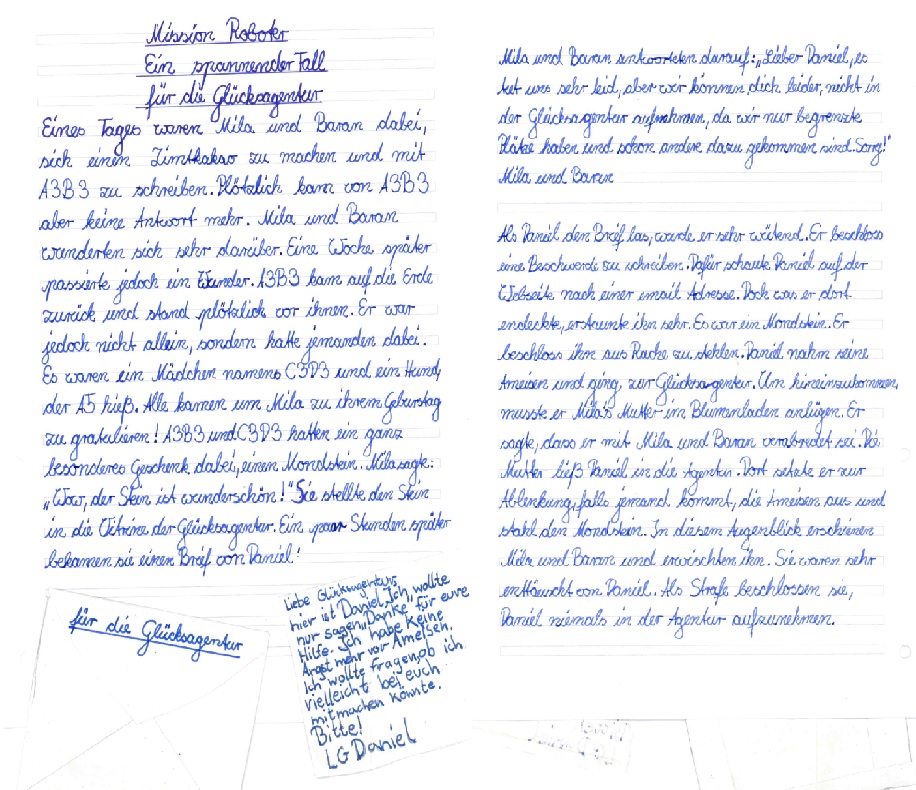 Mission Roboter
Ein spannender Fall
für die Glücksagentur
Eines Tages waren Mila und Baran dabei,
sich einen Zimtkakao zu machen und mit
A3B3 zu schreiben. Plötzlich kam von A3B3
aber keine Antwort mehr. Mila und Baran
wunderten sich sehr darüber. Eine Woche später
passierte jedoch ein Wunder. A3B3 kam auf die Erde
zurück und stand plötzlich vor ihnen. Er war
jedoch nicht allein, sondern hatte jemanden dabei.
Es waren ein Mädchen namens C3D3 und ein Hund,
der A5 hieß. Alle kamen um Mila zu ihrem Geburtstag
zu gratulieren! A3B3 und C3D3 hatten ein ganz
besonderes Geschenk dabei, einen Mondstein. Mila sagte:
„Wow, der Stein ist wunderschön!" Sie stellte den Stein
in die Vitrine der Glücksagentur. Ein paar Stunden später
bekamen sie einen Brief von Daniel:
für die Glücksagentur
Liebe Glücksagentur,
hier ist Daniel. Ich wollte
nur sagen, Danke für eure
Hilfe. Ich habe keine
Angst mehr vor Ameisen.
Ich wollte fragen, ob ich
vielleicht bei euch
mitmachen könnte.
Bitte!
LG Daniel
Mila und Baran antworteten darauf: „Lieber Daniel, es
tut uns sehr leid, aber wir können dich leider, nicht in
der Glücksagentur aufnehmen, da wir nur begrenzte
Plätze haben und schon andere dazu gekommen sind. Sorry!"
Mila und Baran
Als Daniel den Brief las, wurde er sehr wütend. Er beschloss
eine Beschwerde zu schreiben. Dafür schaute Daniel auf der
Webseite nach einer email Adresse. Doch was er dort
endeckte, erstaunte ihn sehr. Es war ein Mondstein. Er
beschloss ihn aus Rache zu stehlen. Daniel nahm seine
Ameisen und ging, zur Glücksagentur. Um hineinzukommen,
musste er Milas Mutter im Blumenladen anlügen. Er
sagte, dass er mit Mila und Baran verabredet sei. Die
Mutter ließ Daniel in die Agentur. Dort setzte er zur
Ablenkung, falls jemand kommt, die Ameisen aus und
stahl den Mondstein. In diesem Augenblick erschienen
Mila und Baran und erwischten ihn. Sie waren sehr
enttäuscht von Daniel. Als Strafe beschlossen sie,
Daniel niemals in der Agentur aufzunehmen.